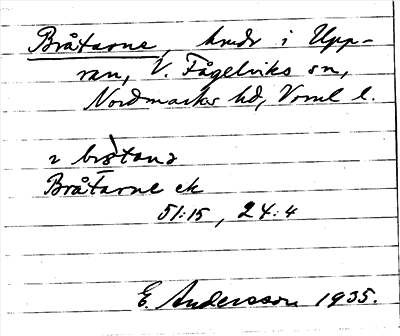 Bråtarne, hmdr i Upp-
ran, V. Fågelviks sn,
Nordmarks hd, Vrml l.
Bråtarne ek
51:15, 24:4
E. Andersson 1935.